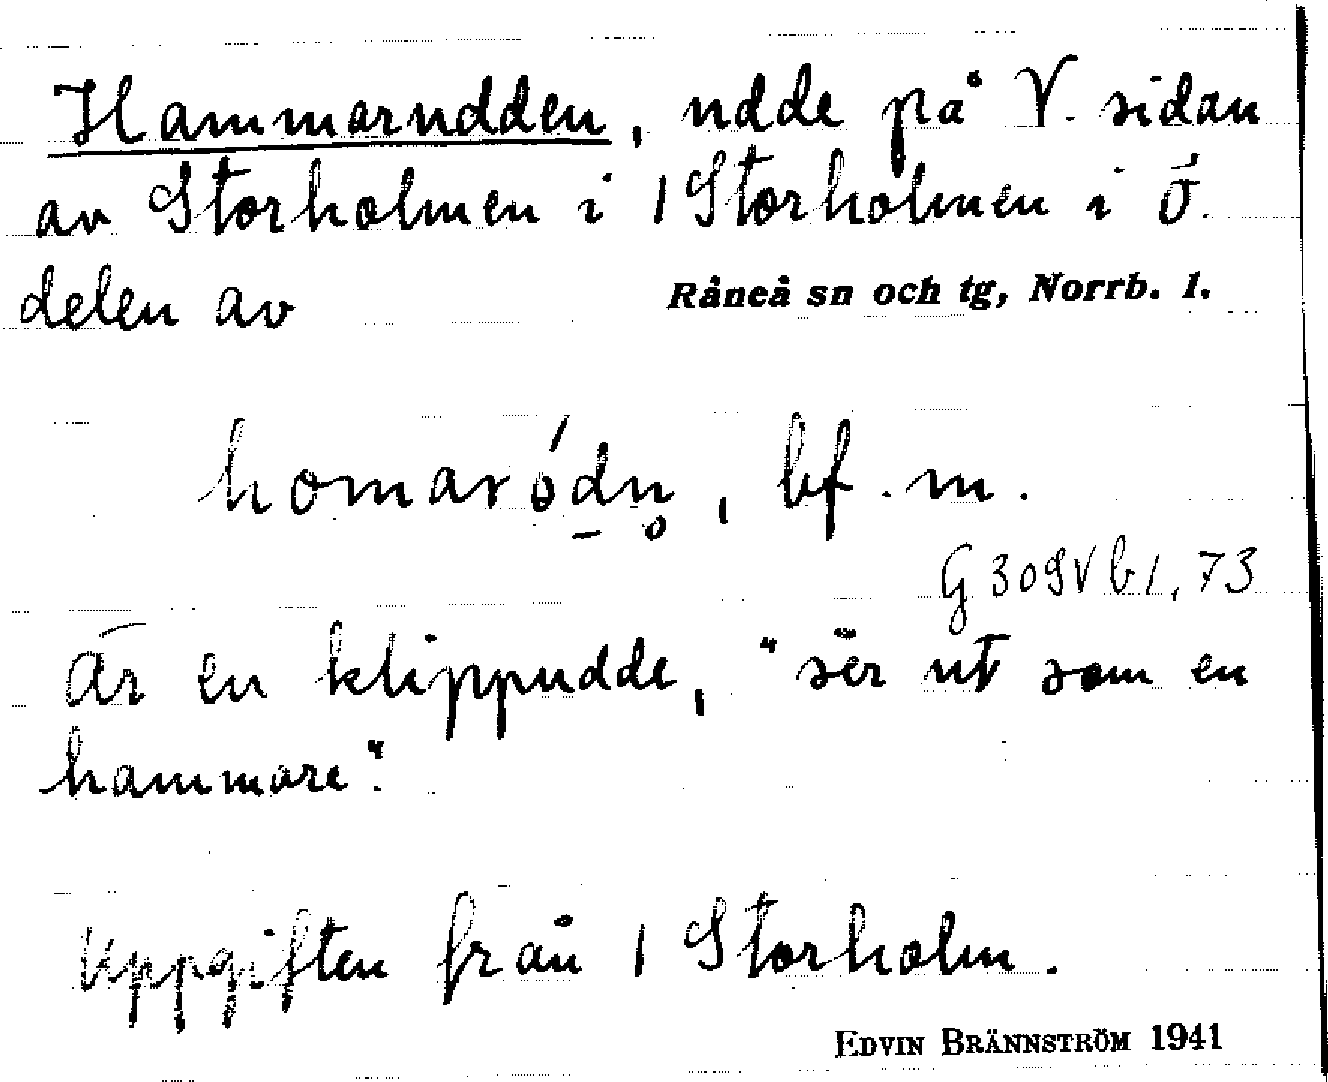 Hammarudden, udde på V. sidan
av Storholmen i 1 Storholmen i Ö.
delen av Råneå sn och tg, Norrb. l.
homarödn̥, bf. m.
G 309Vb1, 73
Är en klippudde, "ser ut som en
hammare".
Uppgiften från 1 Storholm.
EDVIN BRÄNNSTRÖM 1941